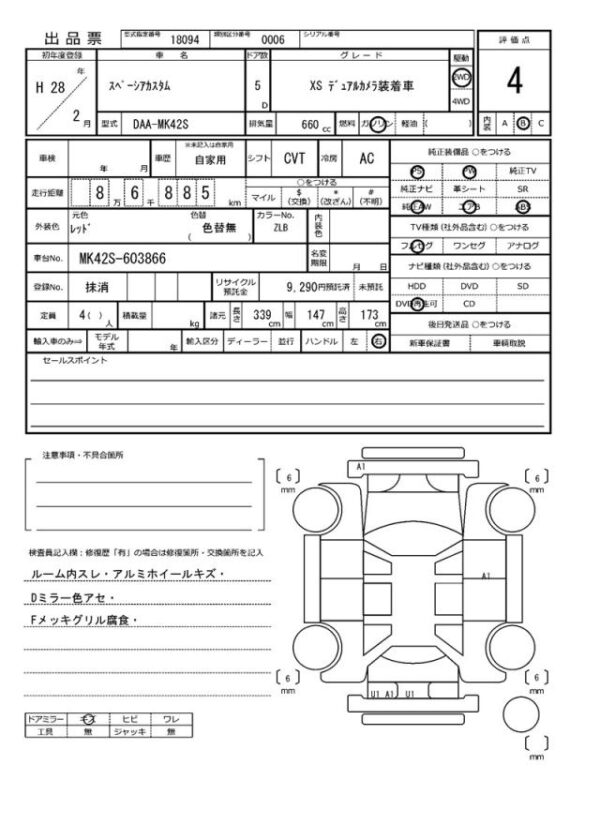 出品票 型式指定番号 18094 類別区分番号 0006 シリアル番号
評価点
初年度登録 車名 ドア数 グレード 駆動
H 28 年 2 月 スペーシアカスタム 5 D XS デュアルカメラ装着車 2WD 4WD
4
型式 DAA-MK42S 排気量 660 cc 燃料 ガソリン 軽油 ( )
内装 A B C
車検 年 月 車歴 ※未記入は自家用 自家用 シフト CVT 冷房 AC
純正装備品 ○をつける
PS PW 純正TV
走行距離 8 万 6 千 8 8 5 km ○をつける マイル $ (交換) * (改ざん) # (不明)
純正ナビ 革シート SR
純正AW エアB ABS
外装色 元色 レッド 色替 ( 色替無 ) カラーNo. ZLB 内装色
TV種類 (社外品含む) ○をつける
フルセグ ワンセグ アナログ
車台No. MK42S-603866 名変期限 月 日
ナビ種類 (社外品含む) ○をつける
登録No. 抹消 リサイクル預託金 9,290円預託済 未預託
HDD DVD SD
DVD再生可 CD
定員 4 ( ) 人 積載量 kg 諸元 長さ 339 cm 幅 147 cm 高さ 173 cm
後日発送品 ○をつける
輸入車のみ⇒ モデル年式 年 輸入区分 ディーラー 並行 ハンドル 左 右
新車保証書 車輌取説
セールスポイント
注意事項・不具合箇所
A1
( 6 ) mm ( 6 ) mm
検査員記入欄：修復歴「有」の場合は修復箇所・交換箇所を記入
ルーム内スレ・アルミホイールキズ・
A1
Dミラー色アセ・
Fメッキグリル腐食・
( 6 ) mm ( 6 ) mm
U1 A1 U1
ドアミラー キズ ヒビ ワレ
工具 無 ジャッキ 無
( ) mm